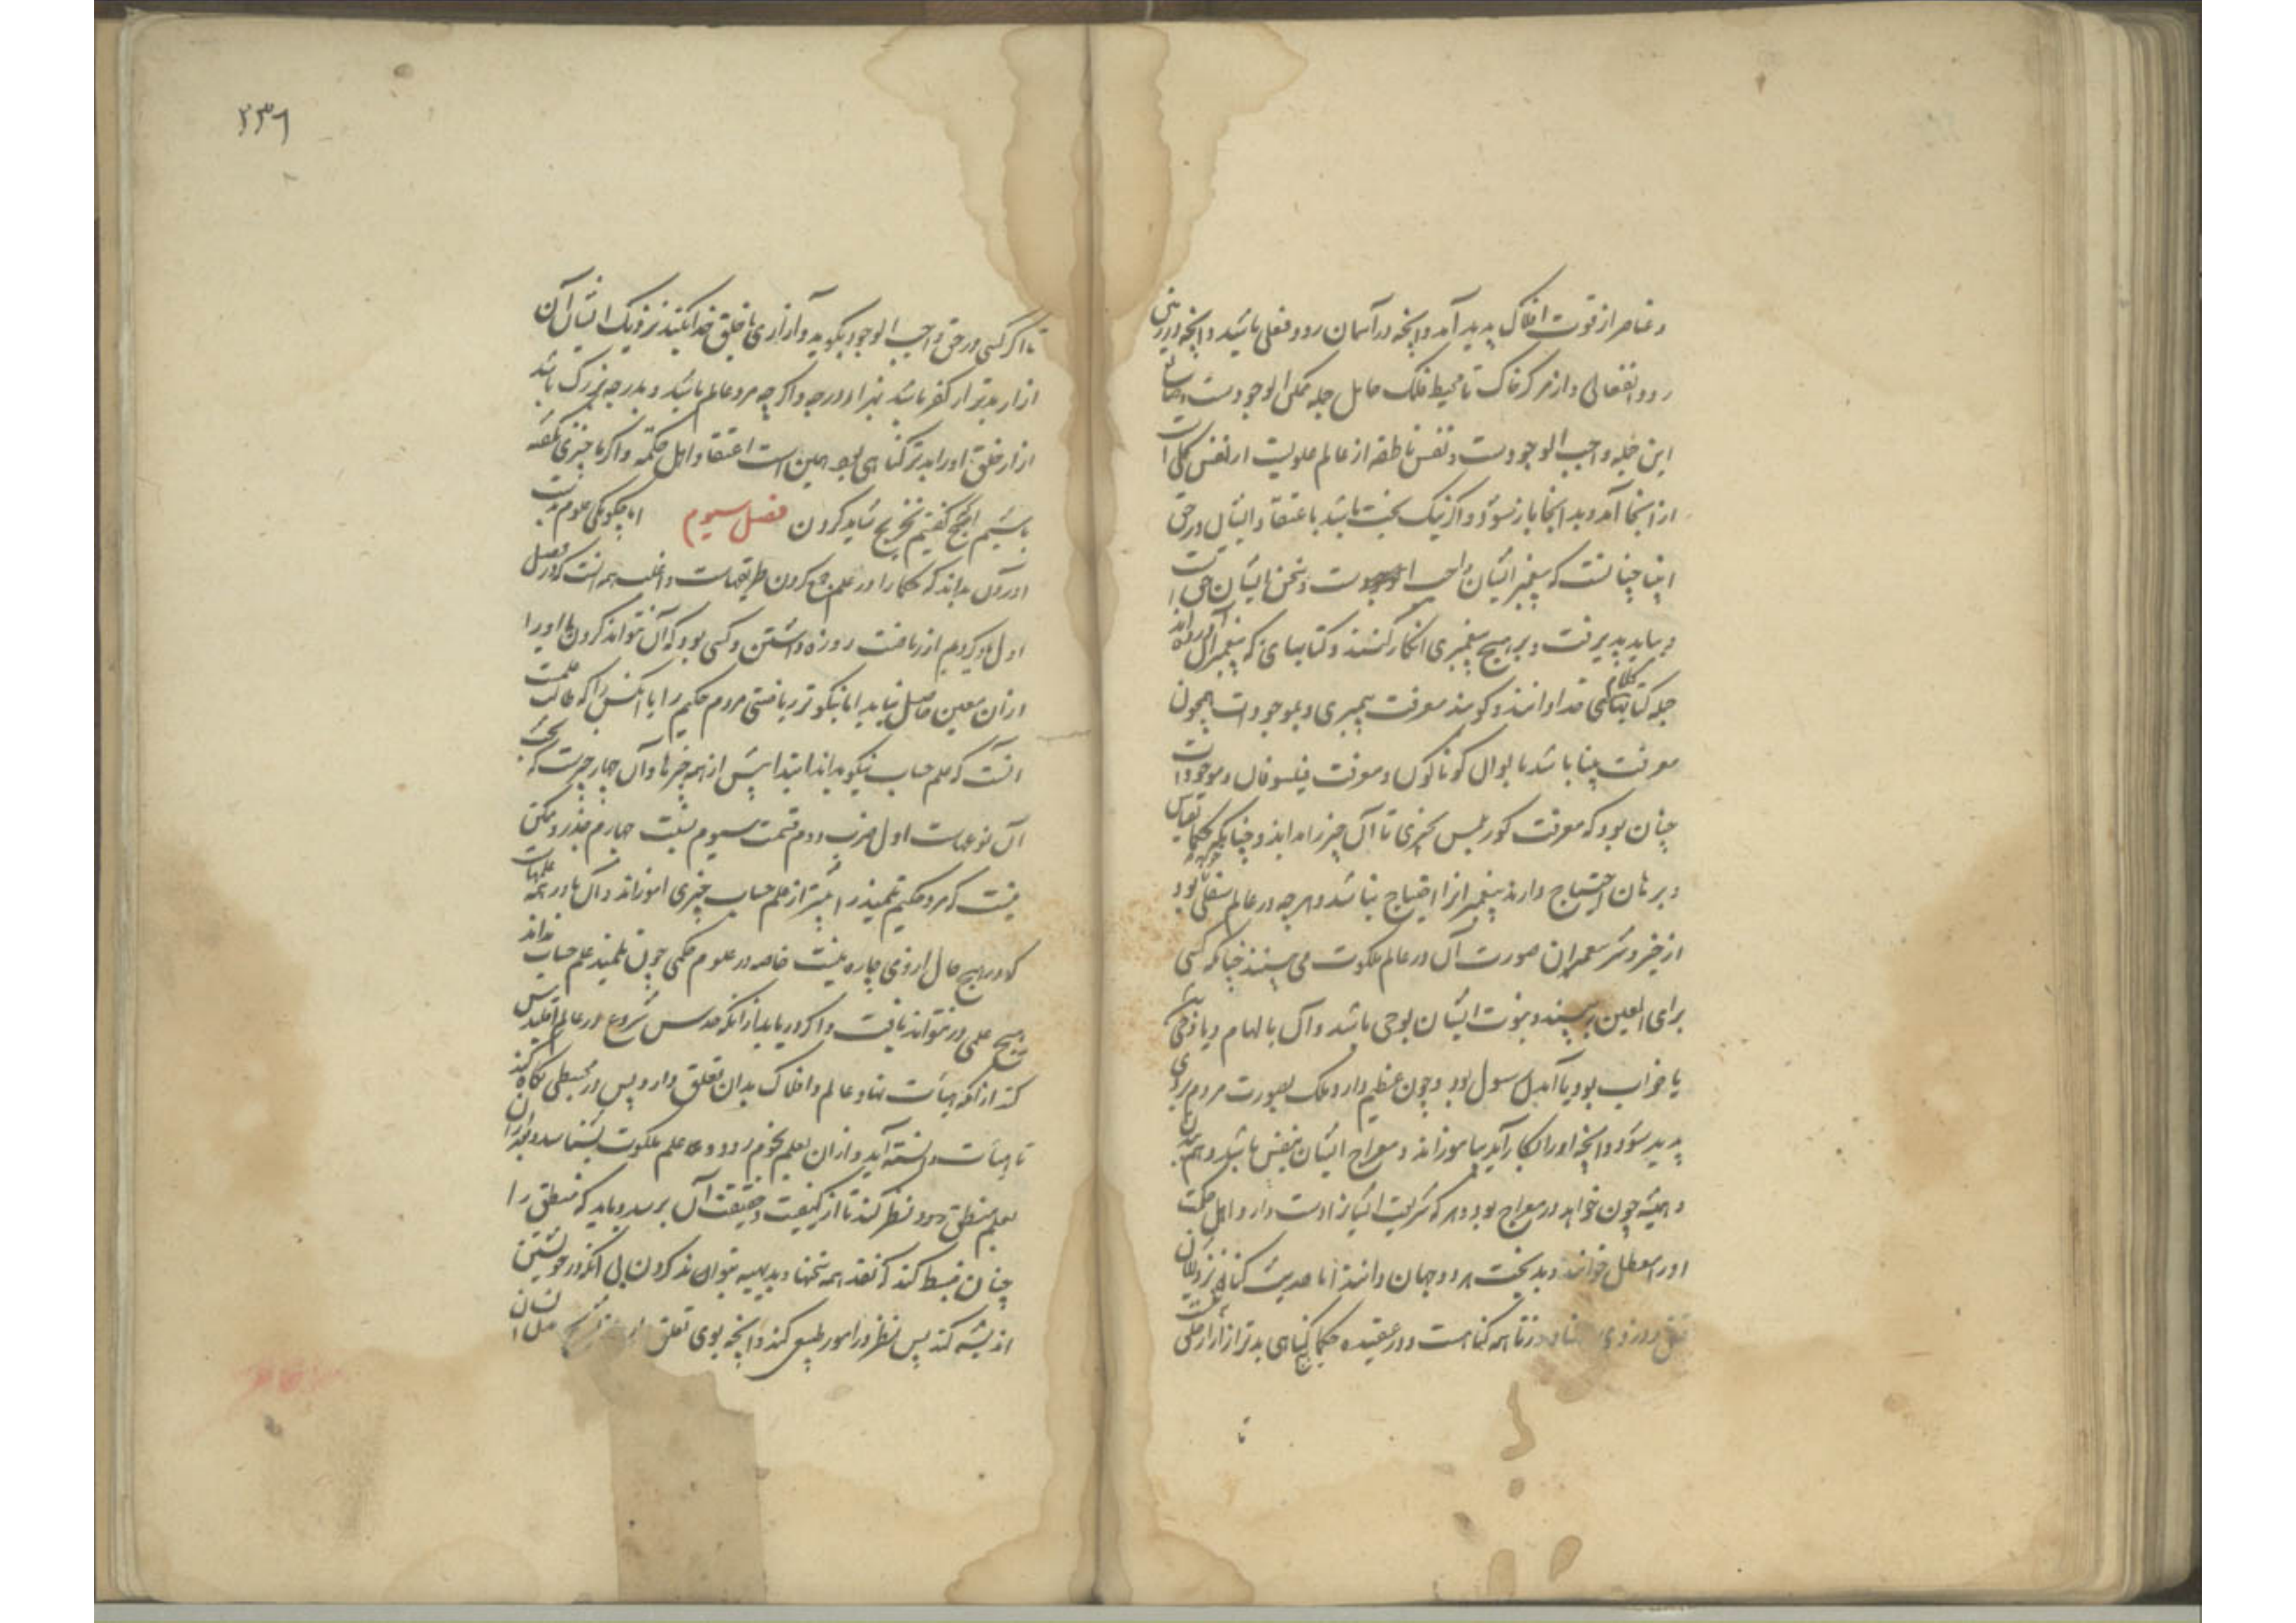 و عناصر از قوت افلاک پدید آمد و آنچه در آسمان رود فعلی باشد و آنچه در زمین
رود انفعالی و از مرکز خاک تا محیط فلک حامل جمله ممکن الوجودست و صانع
این جمله واجب الوجودست و نفس ناطقه از عالم علویست از نفس کلی
از آنجا آمد و بدانجا باز شود و اگر نیک بخت باشد باعتقاد ایشان در حق
انبیا چنانست که پیغمبر ایشان واجب الوجودست و سخن ایشان حق است
و بباید پذیرفت و بر هیچ پیغمبری انکار نکنند و کتابهای که پیغمبران آورده‌اند
جمله کتابهای کلام خدا دانند و گویند معرفت پیغمبری و بموجودات همچون
معرفت بینا باشد بالوان گوناگون و معرفت فیلسوفان و موجودات
چنان بود که معرفت کور بلمس چیزی تا آن چیز را بداند و چنانکه حکما بقیاس
و برهان احتیاج دارند پیغمبران را احتیاج نباشد و هرچه در عالم سفلی بود
از خیر و شر پیغمبران صورت آن در عالم ملکوت می بینند چنانکه کسی
برای العین بیند و نبوت ایشان بوحی باشد و آن بالهام و یا وحی
یا خواب بود یا آمدن رسول بود و چون عظیم دارد ملک بصورت مردم بروی
پدید شود و آنچه او را بکار آید بیاموزاند و معراج ایشان بنفس باشد و هم بتن
و همیشه چون خواهد در معراج بود و هر که شریعت ایشانرا دست دارد اهل حکمت
او را معطل خوانند و بدبخت هر دو جهان دانند اما حدیث گناه نزدیکان
قتل و دزدی و زنا همه گناهست و در عقیده حکما هیچ گناهی بدتر از آزار خلق
تا
۲۳۶
تا اگر کسی در حق واجب الوجود بگوید و آزاری با خلق خدا نکند نزدیک ایشان آن
آزار بدتر از کفر باشد بهزار درجه و اگرچه مرد عالم باشد و بدرجه بزرگ باشد
آزار خلق او را بدتر گناهی بود همین است اعتقاد اهل حکمه و اگر ما چیزی نگفته
باشیم آنچه گفتیم تخریج نباید کردن فصل سیوم اما چگونگی علوم بدست
آوردن بداند که حکما را در علم جمع کردن طریقهاست و اغلب همه آنست که در فصل
اول یاد کردیم از ریاضت روزه داشتن و کسی بود که آن نتواند کردن ما او را
از آن معین حاصل نیاید اما نیکوتر ریاضتی مردم حکیم را یا آنکس را که طالب علمست
آنست که علم حساب نیکو بداند ابتدا پیش از همه چیزها و آن چهار چیزست که بجای
آن نوعهاست اول ضرب دوم قسمت سیوم نسبت چهارم جذر و ممکن
نیست که مرد حکیم تلمیذ را پیشتر از علم حساب چیزی آموزاند و آن مادر همه علمهاست
که در هیچ حال از وی چاره نیست خاصه در علوم حکمی چون تلمیذ علم حساب نداند
هیچ علمی در نتواند یافت و اگر دریابد باز آنگه حدس شروع در عالم اقلیدس
کند از آنکه هیأت نهاد عالم و افلاک بدان تعلق دارد پس در مجسطی نگاه کند
تا هیأت دانسته آید و از آن بعلم نجوم رود و علم ملکوت بشناسد و بعد از آن
بعلم منطق رود و نظر کند تا از کیفیت و حقیقت آن برسد و باید که منطق را
چنان ضبط کند که نقد همه سخنها و بدیهیه بتواند کردن بی آنکه در خویشتن
اندیشه کند پس نظر در امور طبیعی کند و آنچه بوی تعلق